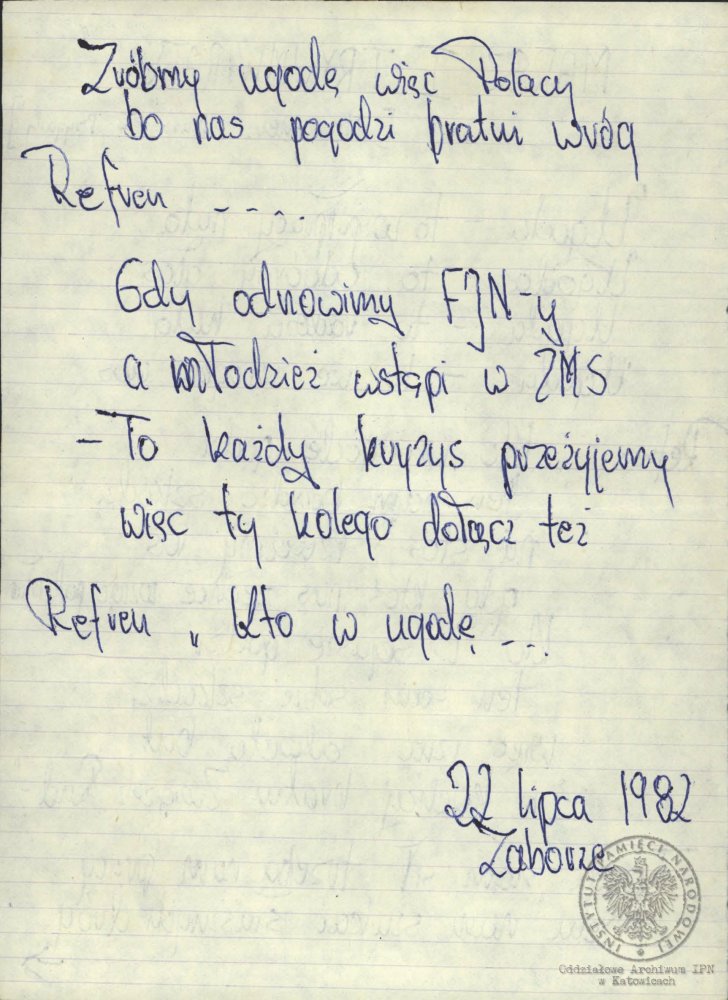 Zróbmy ugodę więc Polacy
bo nas pogodzi bratni wróg
Refren - - - .
Gdy odnowimy FJN-y
a młodzież wstąpi w ZMS
- To każdy kryzys przeżyjemy
więc ty kolego dołącz też
Refren „ Kto w ugodę - - -
22 lipca 1982
Zaborze
INSTYTUT PAMIĘCI NARODOWEJ
Oddziałowe Archiwum IPN
w Katowicach